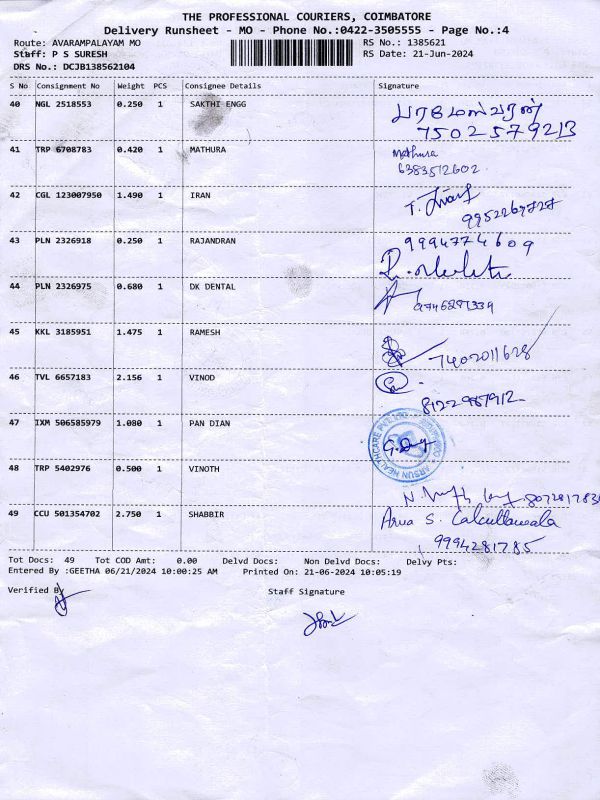 THE PROFESSIONAL COURIERS, COIMBATORE
Delivery Runsheet - MO - Phone No.:0422-3505555 - Page No.:4
Route: AVARAMPALAYAM MO
RS No.: 1385621
Staff: P S SURESH
RS Date: 21-Jun-2024
DRS No.: DCJB138562104
S No Consignment No Weight PCS Consignee Details Signature
40 NGL 2518553 0.250 1 SAKTHI ENGG
பரமேஸ்வரன்
7502579213
41 TRP 6708783 0.420 1 MATHURA Mathura
6383512602
42 CGL 123007950 1.490 1 IRAN
9952269727
43 PLN 2326918 0.250 1 RAJANDRAN 9994774609
44 PLN 2326975 0.680 1 DK DENTAL
9746287339
45 KKL 3185951 1.475 1 RAMESH
7402011628
46 TVL 6657183 2.156 1 VINOD
47 IXM 506585979 1.080 1 PAN DIAN
ARSUN HEALTHCARE PVT LTD
48 TRP 5402976 0.500 1 VINOTH
49 CCU 501354702 2.750 1 SHABBIR Arwa S. Calcuttawala
9994281785
Tot Docs: 49 Tot COD Amt: 0.00 Delvd Docs: Non Delvd Docs: Delvy Pts:
Entered By :GEETHA 06/21/2024 10:00:25 AM Printed On: 21-06-2024 10:05:19
Verified By Staff Signature